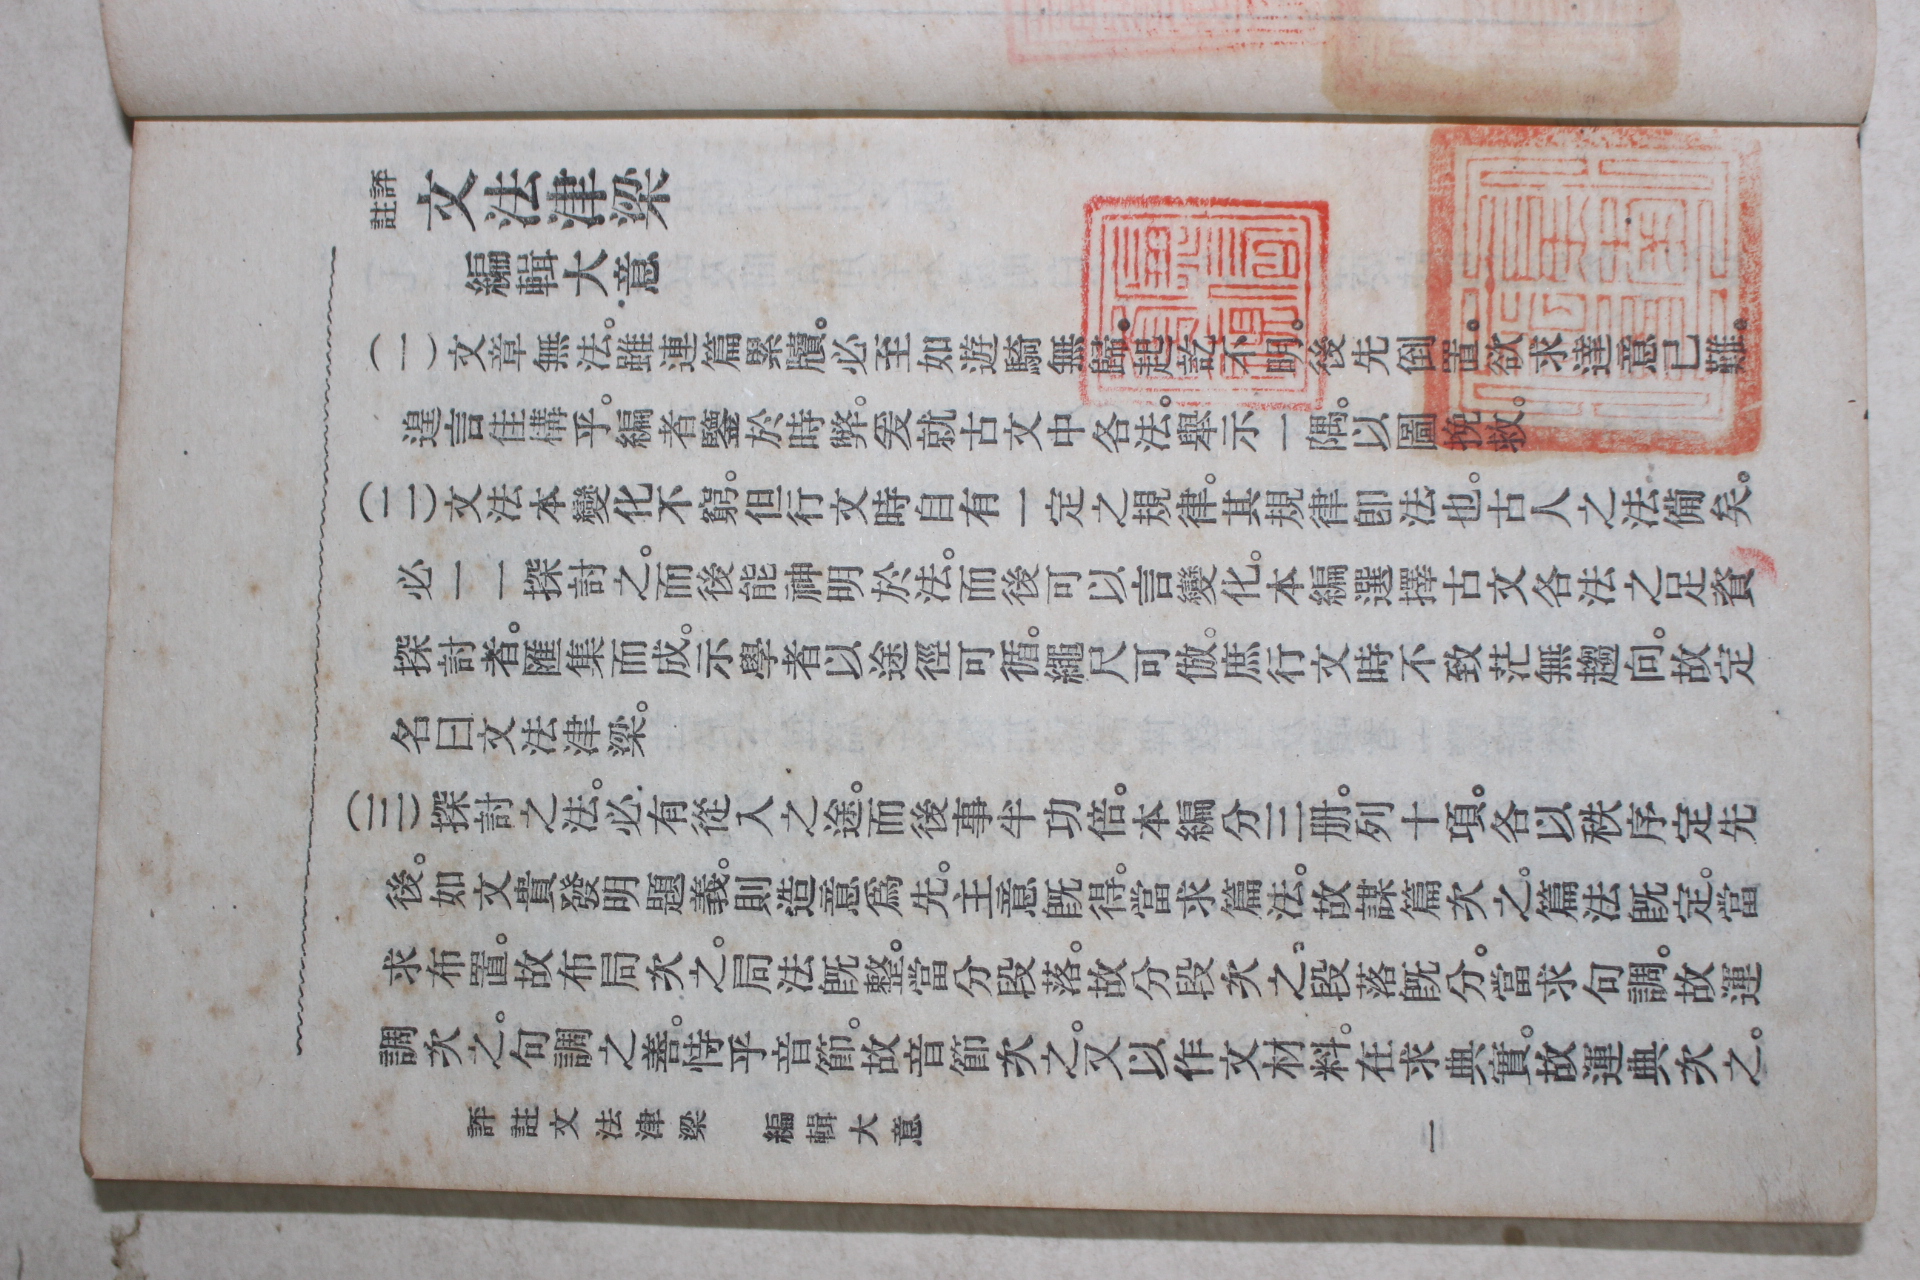 評註文法津梁
編輯大意
(一)文章無法。雖連篇累牘。必至如遊騎無歸。起訖不明。後先倒置。欲求達意已難。
遑言佳構乎。編者鑒於時弊。爰就古文中各法。舉示一隅。以圖挽救。
(二)文法本變化不窮。但行文時自有一定之規律。其規律卽法也。古人之法備矣。
必一一探討之。而後能神明於法。而後可以言變化。本編選擇古文各法之足資
探討者。匯集而成。示學者以途徑可循。繩尺可倣。庶行文時不致茫無趨向。故定
名曰文法津梁。
(三)探討之法。必有從入之途。而後事半功倍。本編分三册。列十項。各以秩序定先
後。如文貴發明題義。則造意爲先。主意旣得。當求篇法。故謀篇次之。篇法旣定。當
求布置。故布局次之。局法旣整。當分段落。故分段次之。段落旣分。當求句調。故運
調次之。句調之善。恃乎音節。故音節次之。又以作文材料。在求典實。故運典次之。
評註文法津梁 編輯大意
一